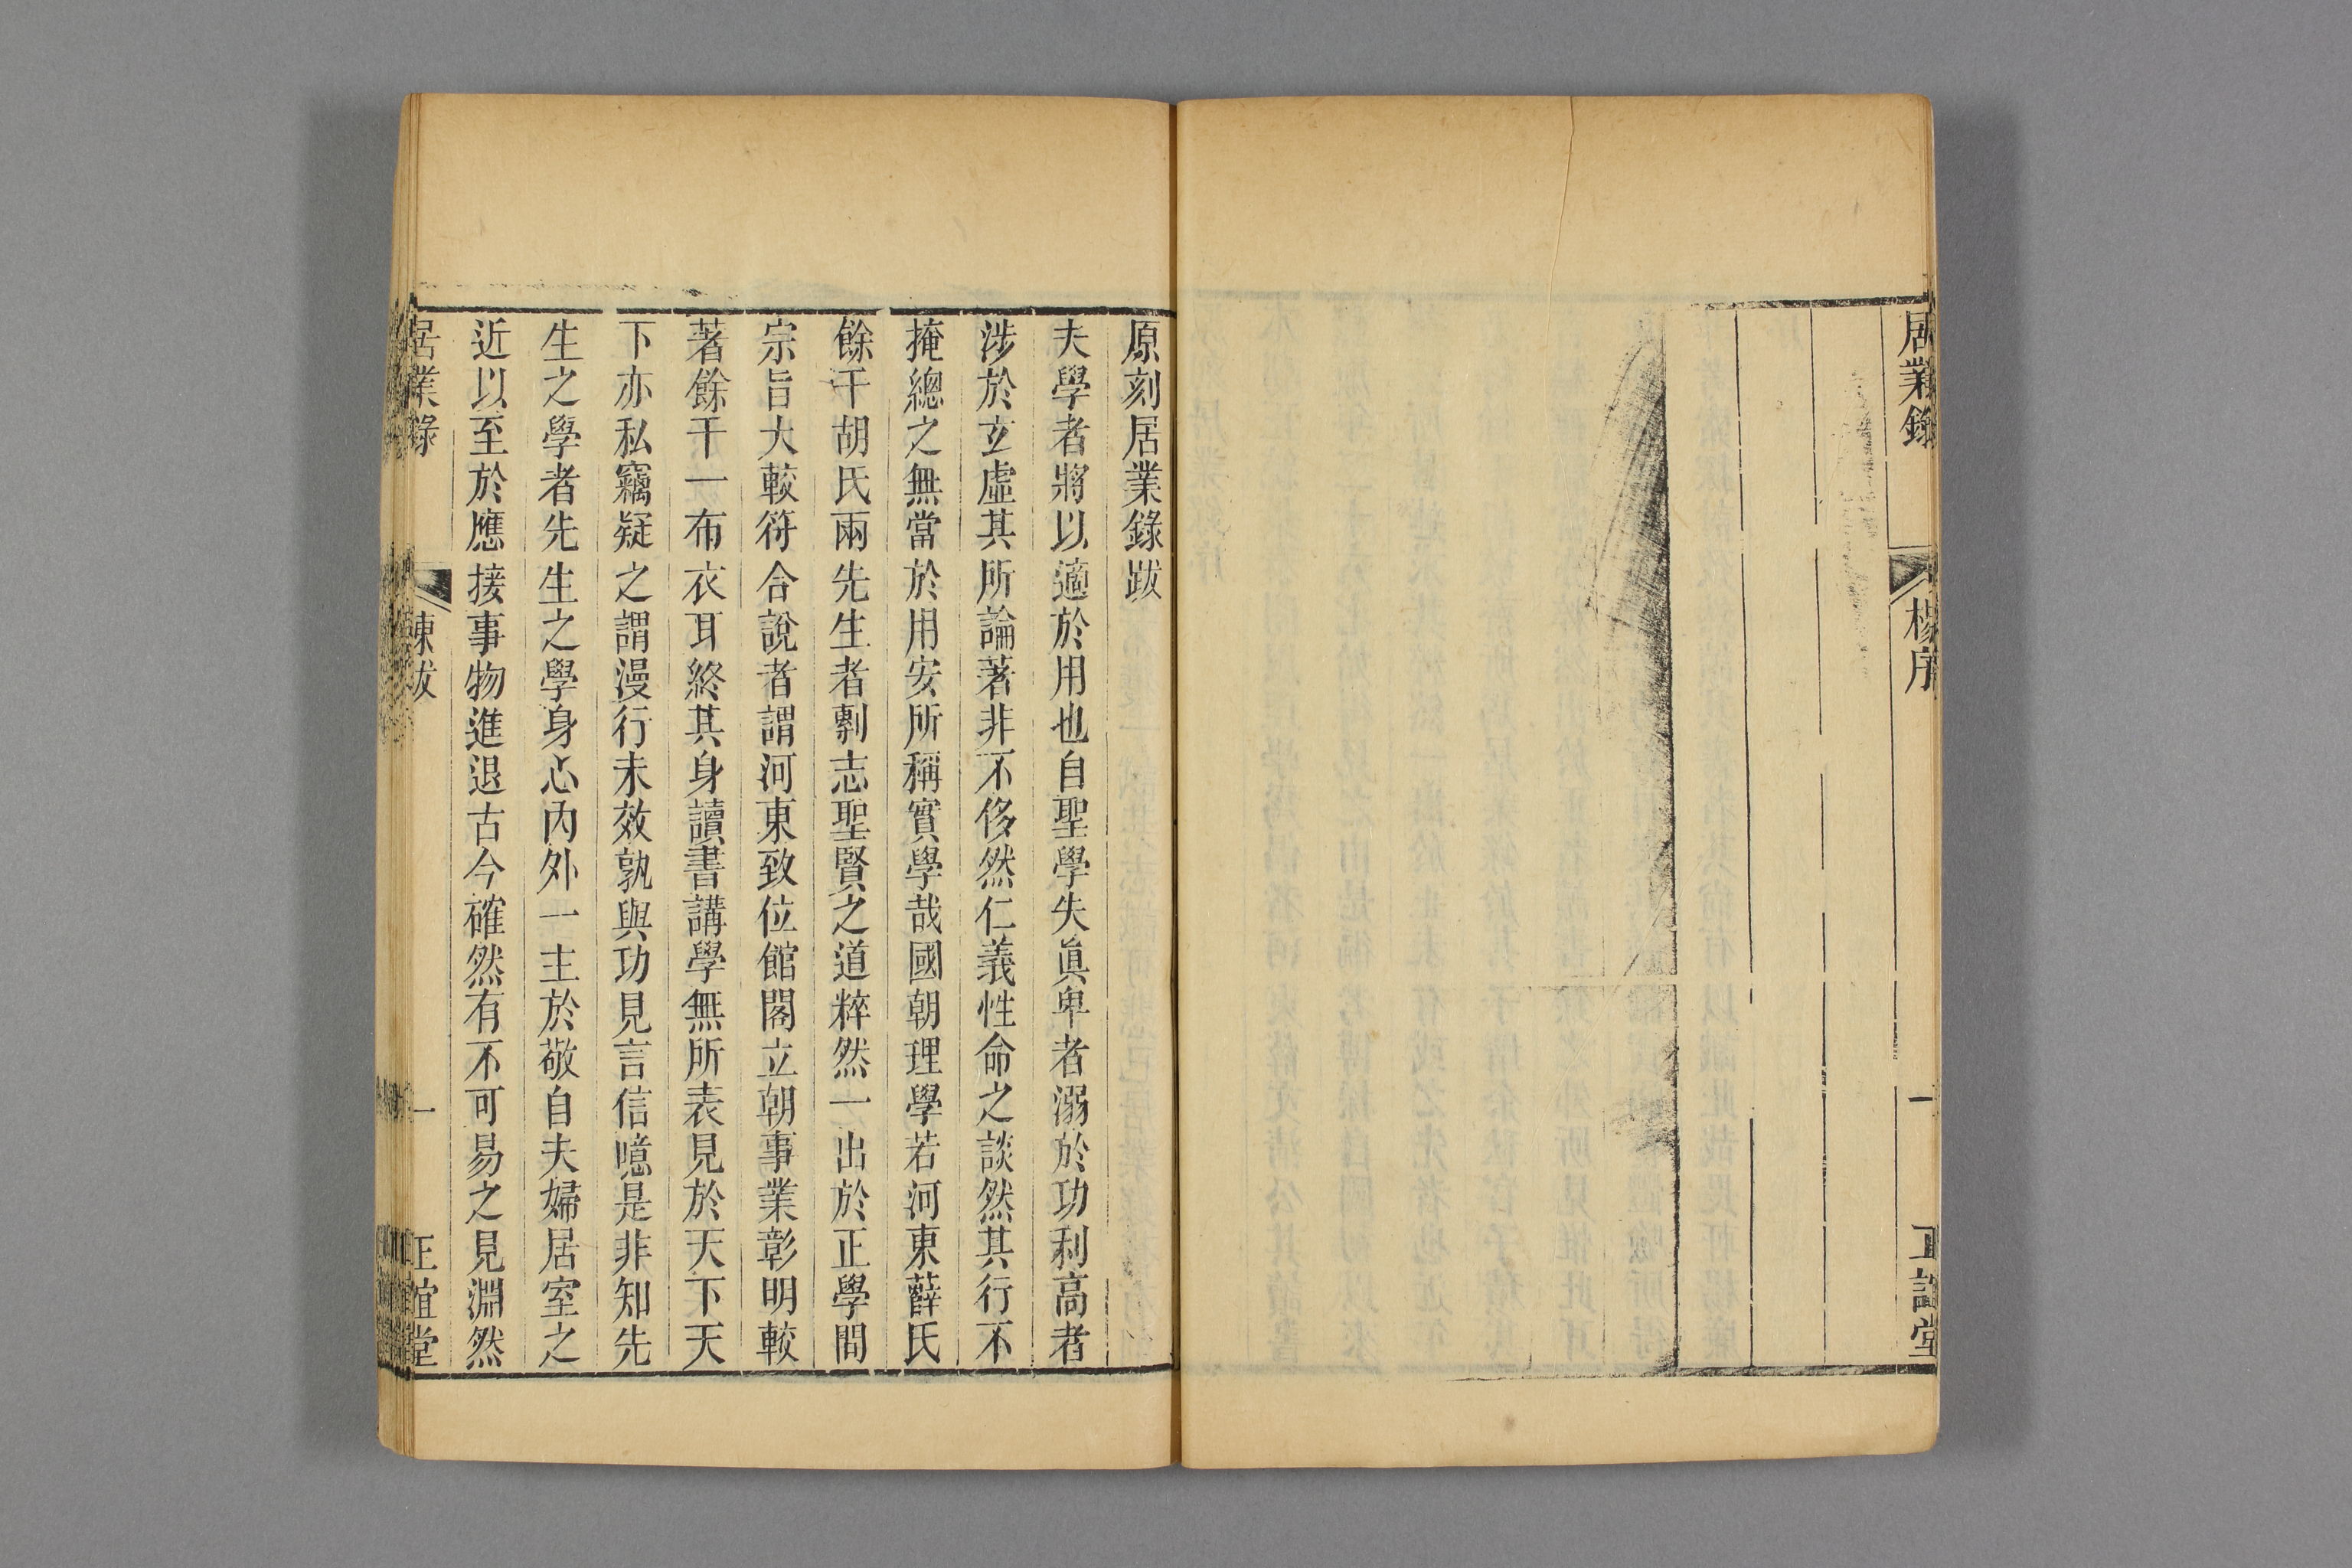 居業錄
楊序
一
正誼堂
原刻居業錄跋
夫學者將以適於用也自聖學失眞卑者溺於功利高者
涉於玄虛其所論著非不侈然仁義性命之談然其行不
掩總之無當於用安所稱實學哉國朝理學若河東薛氏
餘干胡氏兩先生者剸志聖賢之道粹然一出於正學間
宗旨大較符合說者謂河東致位館閣立朝事業彰明較
著餘干一布衣耳終其身讀書講學無所表見於天下天
下亦私竊疑之謂漫行未效孰與功見言信噫是非知先
生之學者先生之學身心內外一主於敬自夫婦居室之
近以至於應接事物進退古今確然有不可易之見淵然
居業錄
陳跋
一
正誼堂